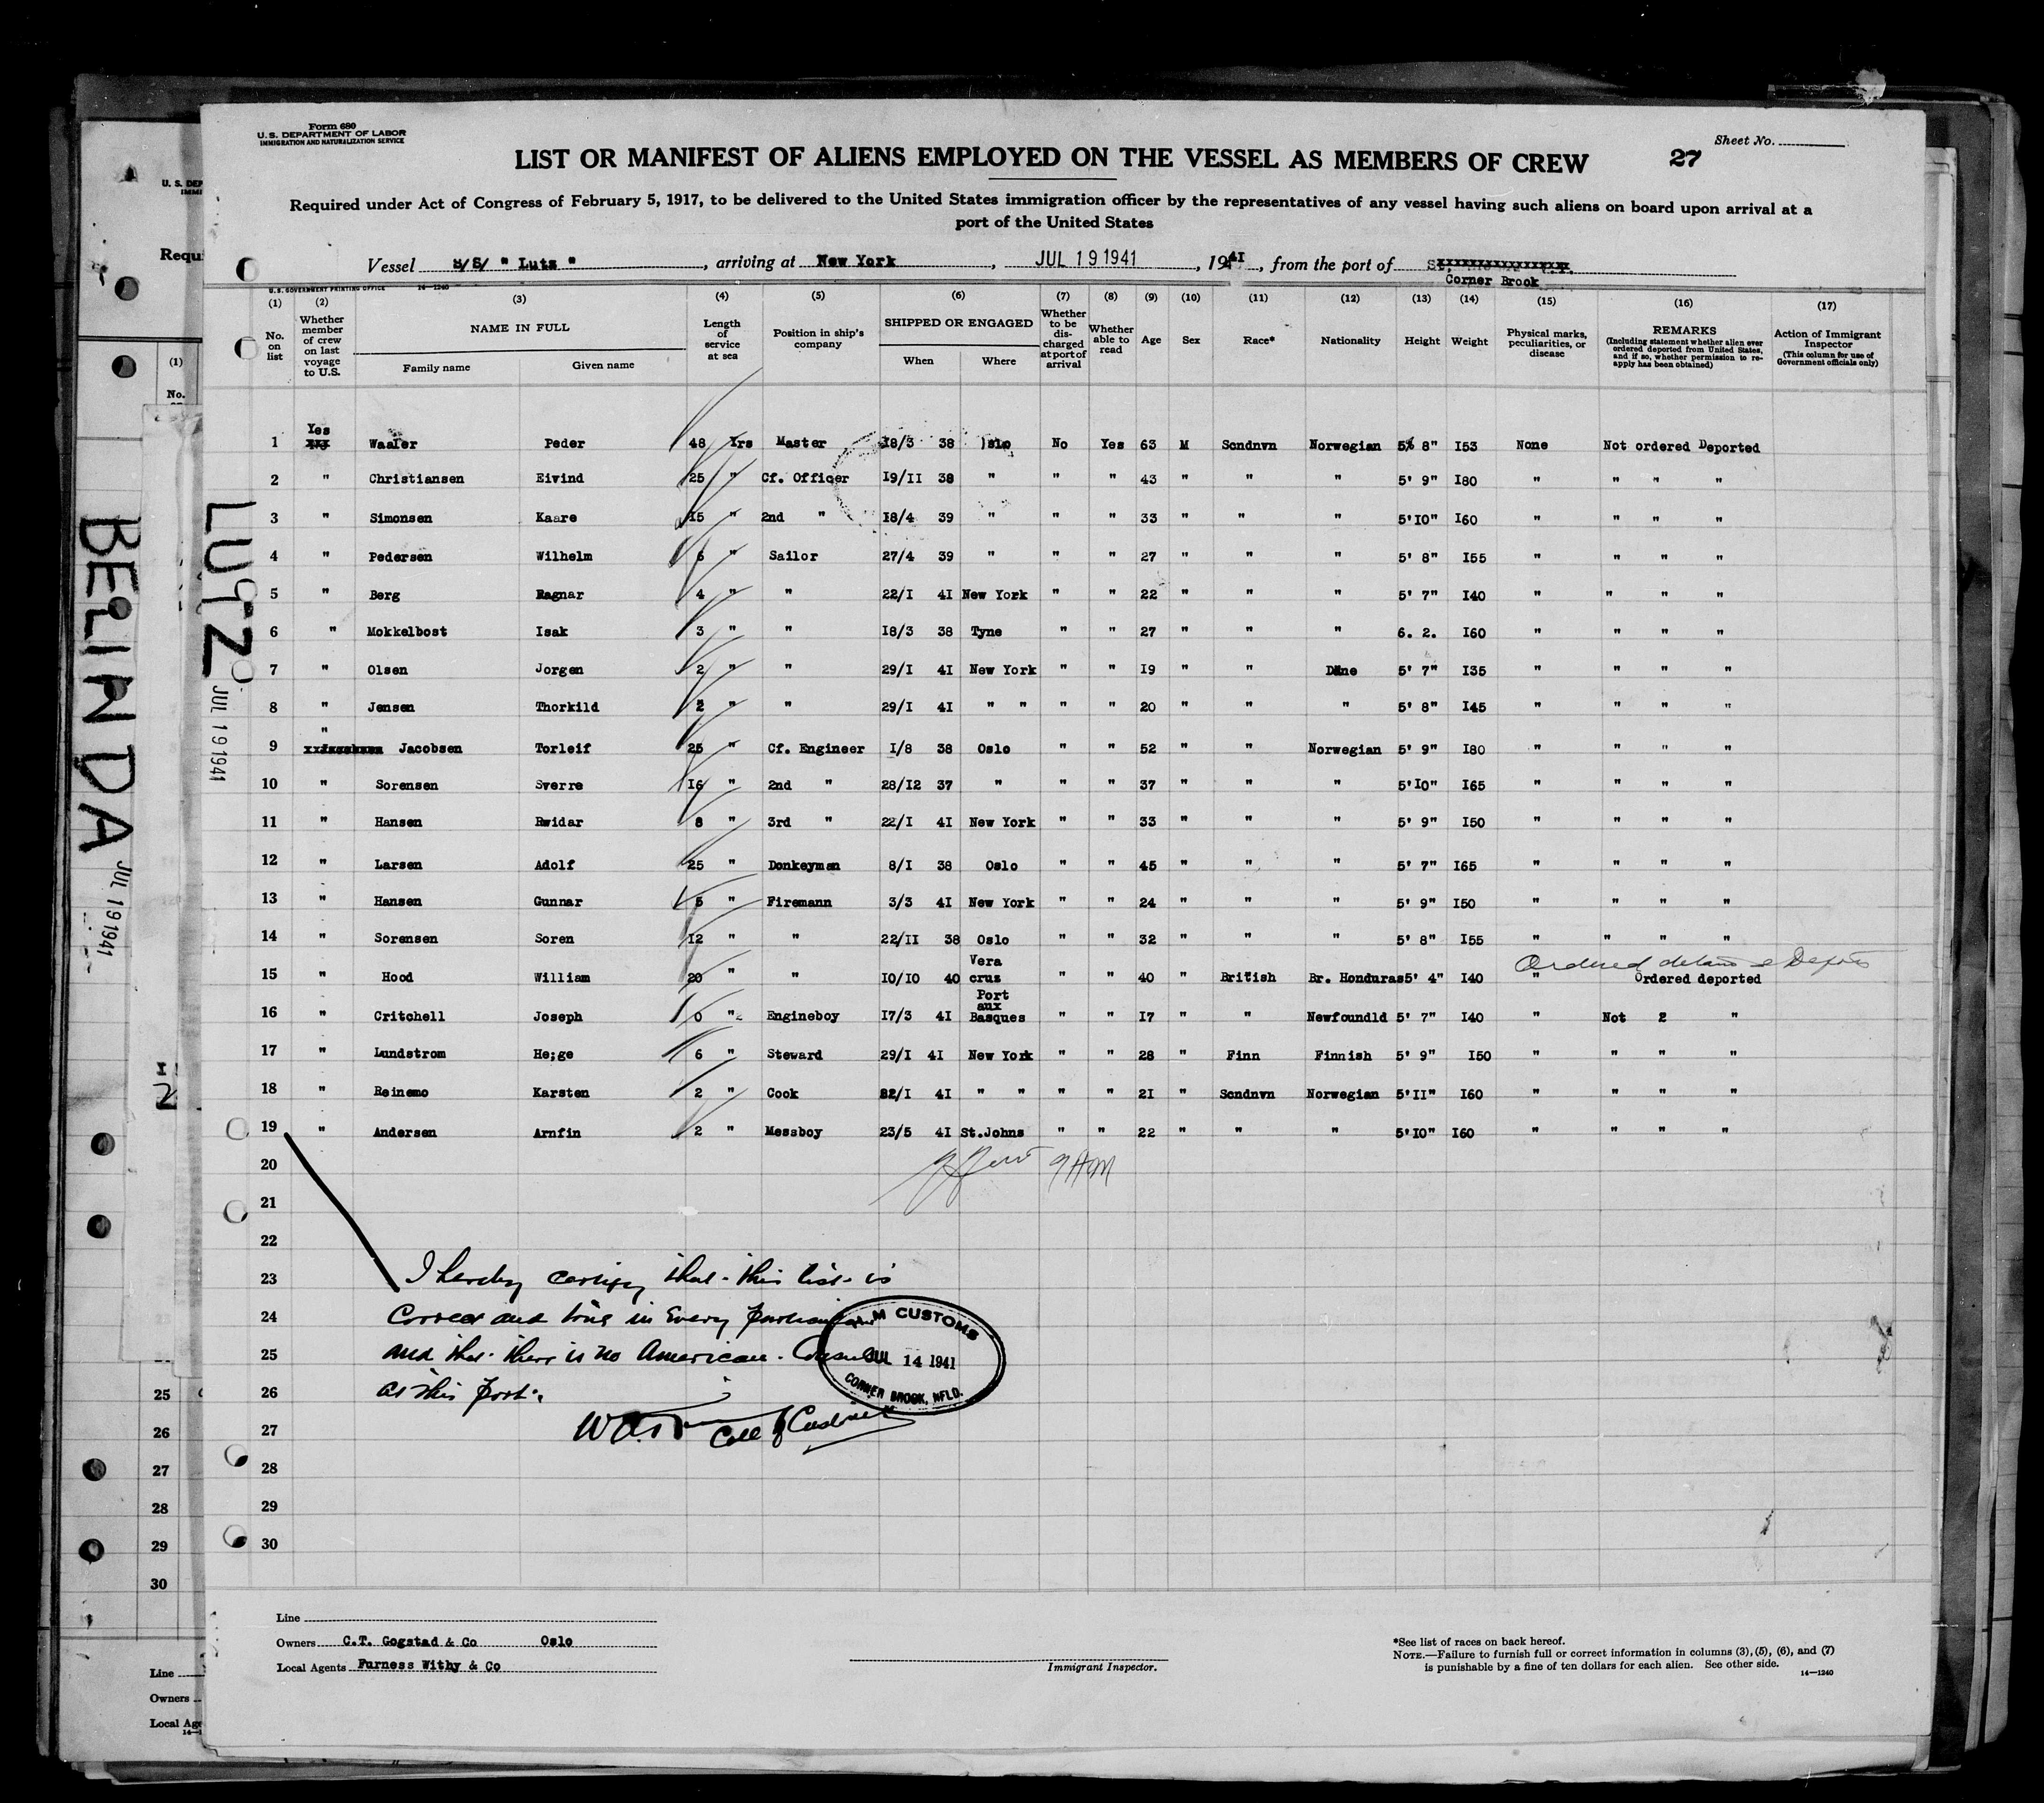 Form 680
U. S. DEPARTMENT OF LABOR
IMMIGRATION AND NATURALIZATION SERVICE
Sheet No.
LIST OR MANIFEST OF ALIENS EMPLOYED ON THE VESSEL AS MEMBERS OF CREW 27
Required under Act of Congress of February 5, 1917, to be delivered to the United States immigration officer by the representatives of any vessel having such aliens on board upon arrival at a
port of the United States
Vessel S/S/ " Lutz ", arriving at New York, JUL 19 1941, 1941, from the port of
Corner Brook
U.S. GOVERNMENT PRINTING OFFICE 14—1240
(1) No. on list
(2) Whether member of crew on last voyage to U.S.
(3) NAME IN FULL Family name Given name
(4) Length of service at sea
(5) Position in ship's company
(6) SHIPPED OR ENGAGED When Where
(7) Whether to be discharged at port of arrival
(8) Whether able to read
(9) Age
(10) Sex
(11) Race*
(12) Nationality
(13) Height
(14) Weight
(15) Physical marks, peculiarities, or disease
(16) REMARKS (Including statement whether alien ever ordered deported from United States, and if so, whether permission to re-apply has been obtained)
(17) Action of Immigrant Inspector (This column for use of Government officials only)
1 Yes Waaler Peder 48 Yrs Master 18/3 38 Oslo No Yes 63 M Scndnvn Norwegian 5' 8" I53 None Not ordered Deported
2 " Christiansen Eivind 25 " Cf. Officer I9/II 38 " " " 43 " " " 5' 9" I80 " " " "
3 " Simonsen Kaare I5 " 2nd " I8/4 39 " " " 33 " " " 5'IO" I60 " " " "
4 " Pedersen Wilhelm 6 " Sailor 27/4 39 " " " 27 " " " 5' 8" I55 " " " "
5 " Berg Ragnar 4 " " 22/I 4I New York " " 22 " " " 5' 7" I40 " " " "
6 " Mokkelbost Isak 3 " " I8/3 38 Tyne " " 27 " " " 6. 2. I60 " " " "
7 " Olsen Jorgen 2 " " 29/I 4I New York " " I9 " " Dane 5' 7" I35 " " " "
8 " Jensen Thorkild 2 " " 29/I 4I " " " " 20 " " " 5' 8" I45 " " " "
9 " Jacobsen Torleif 25 " Cf. Engineer I/8 38 Oslo " " 52 " " Norwegian 5' 9" I80 " " " "
10 " Sorensen Sverre I6 " 2nd " 28/I2 37 " " " 37 " " " 5'IO" I65 " " " "
11 " Hansen Rwidar 8 " 3rd " 22/I 4I New York " " 33 " " " 5' 9" I50 " " " "
12 " Larsen Adolf 25 " Donkeyman 8/I 38 Oslo " " 45 " " " 5' 7" I65 " " " "
13 " Hansen Gunnar 5 " Firemann 3/3 4I New York " " 24 " " " 5' 9" I50 " " " "
14 " Sorensen Soren I2 " " 22/II 38 Oslo " " 32 " " " 5' 8" I55 " " " "
Ordered detain & Deport
15 " Hood William 20 " " IO/IO 40 Vera cruz " " 40 " British Br. Honduras 5' 4" I40 " Ordered deported
16 " Critchell Joseph 0 " Engineboy I7/3 4I Port aux Basques " " I7 " " Newfoundld 5' 7" I40 " Not 2 "
17 " Lundstrom He;ge 6 " Steward 29/I 4I New York " " 28 " Finn Finnish 5' 9" I50 " " " "
18 " Reinemo Karsten 2 " Cook 22/I 4I " " " " 2I " Scndnvn Norwegian 5'II" I60 " " " "
19 " Andersen Arnfin 2 " Messboy 23/5 4I St.Johns " " 22 " " " 5'IO" I60 " " " "
20
9 AM
21
22
23 I hereby certify that this list is
24 Correct and true in Every particular
25 and that there is no American Consul
26 at this port.
M CUSTOMS
JUL 14 1941
CORNER BROOK, NFLD.
27
28
29
30
Line
Owners C.T. Gogstad & Co Oslo
Local Agents Furness Withy & Co
Immigrant Inspector.
*See list of races on back hereof.
NOTE.—Failure to furnish full or correct information in columns (3), (5), (6), and (7)
is punishable by a fine of ten dollars for each alien. See other side.
14—1240
LUTZ
JUL 19 1941
BELINDA
JUL 19 1941
U. S. DEP
Requi
(1)
No.
25
26
27
28
29
30
Line
Owners
Local Age